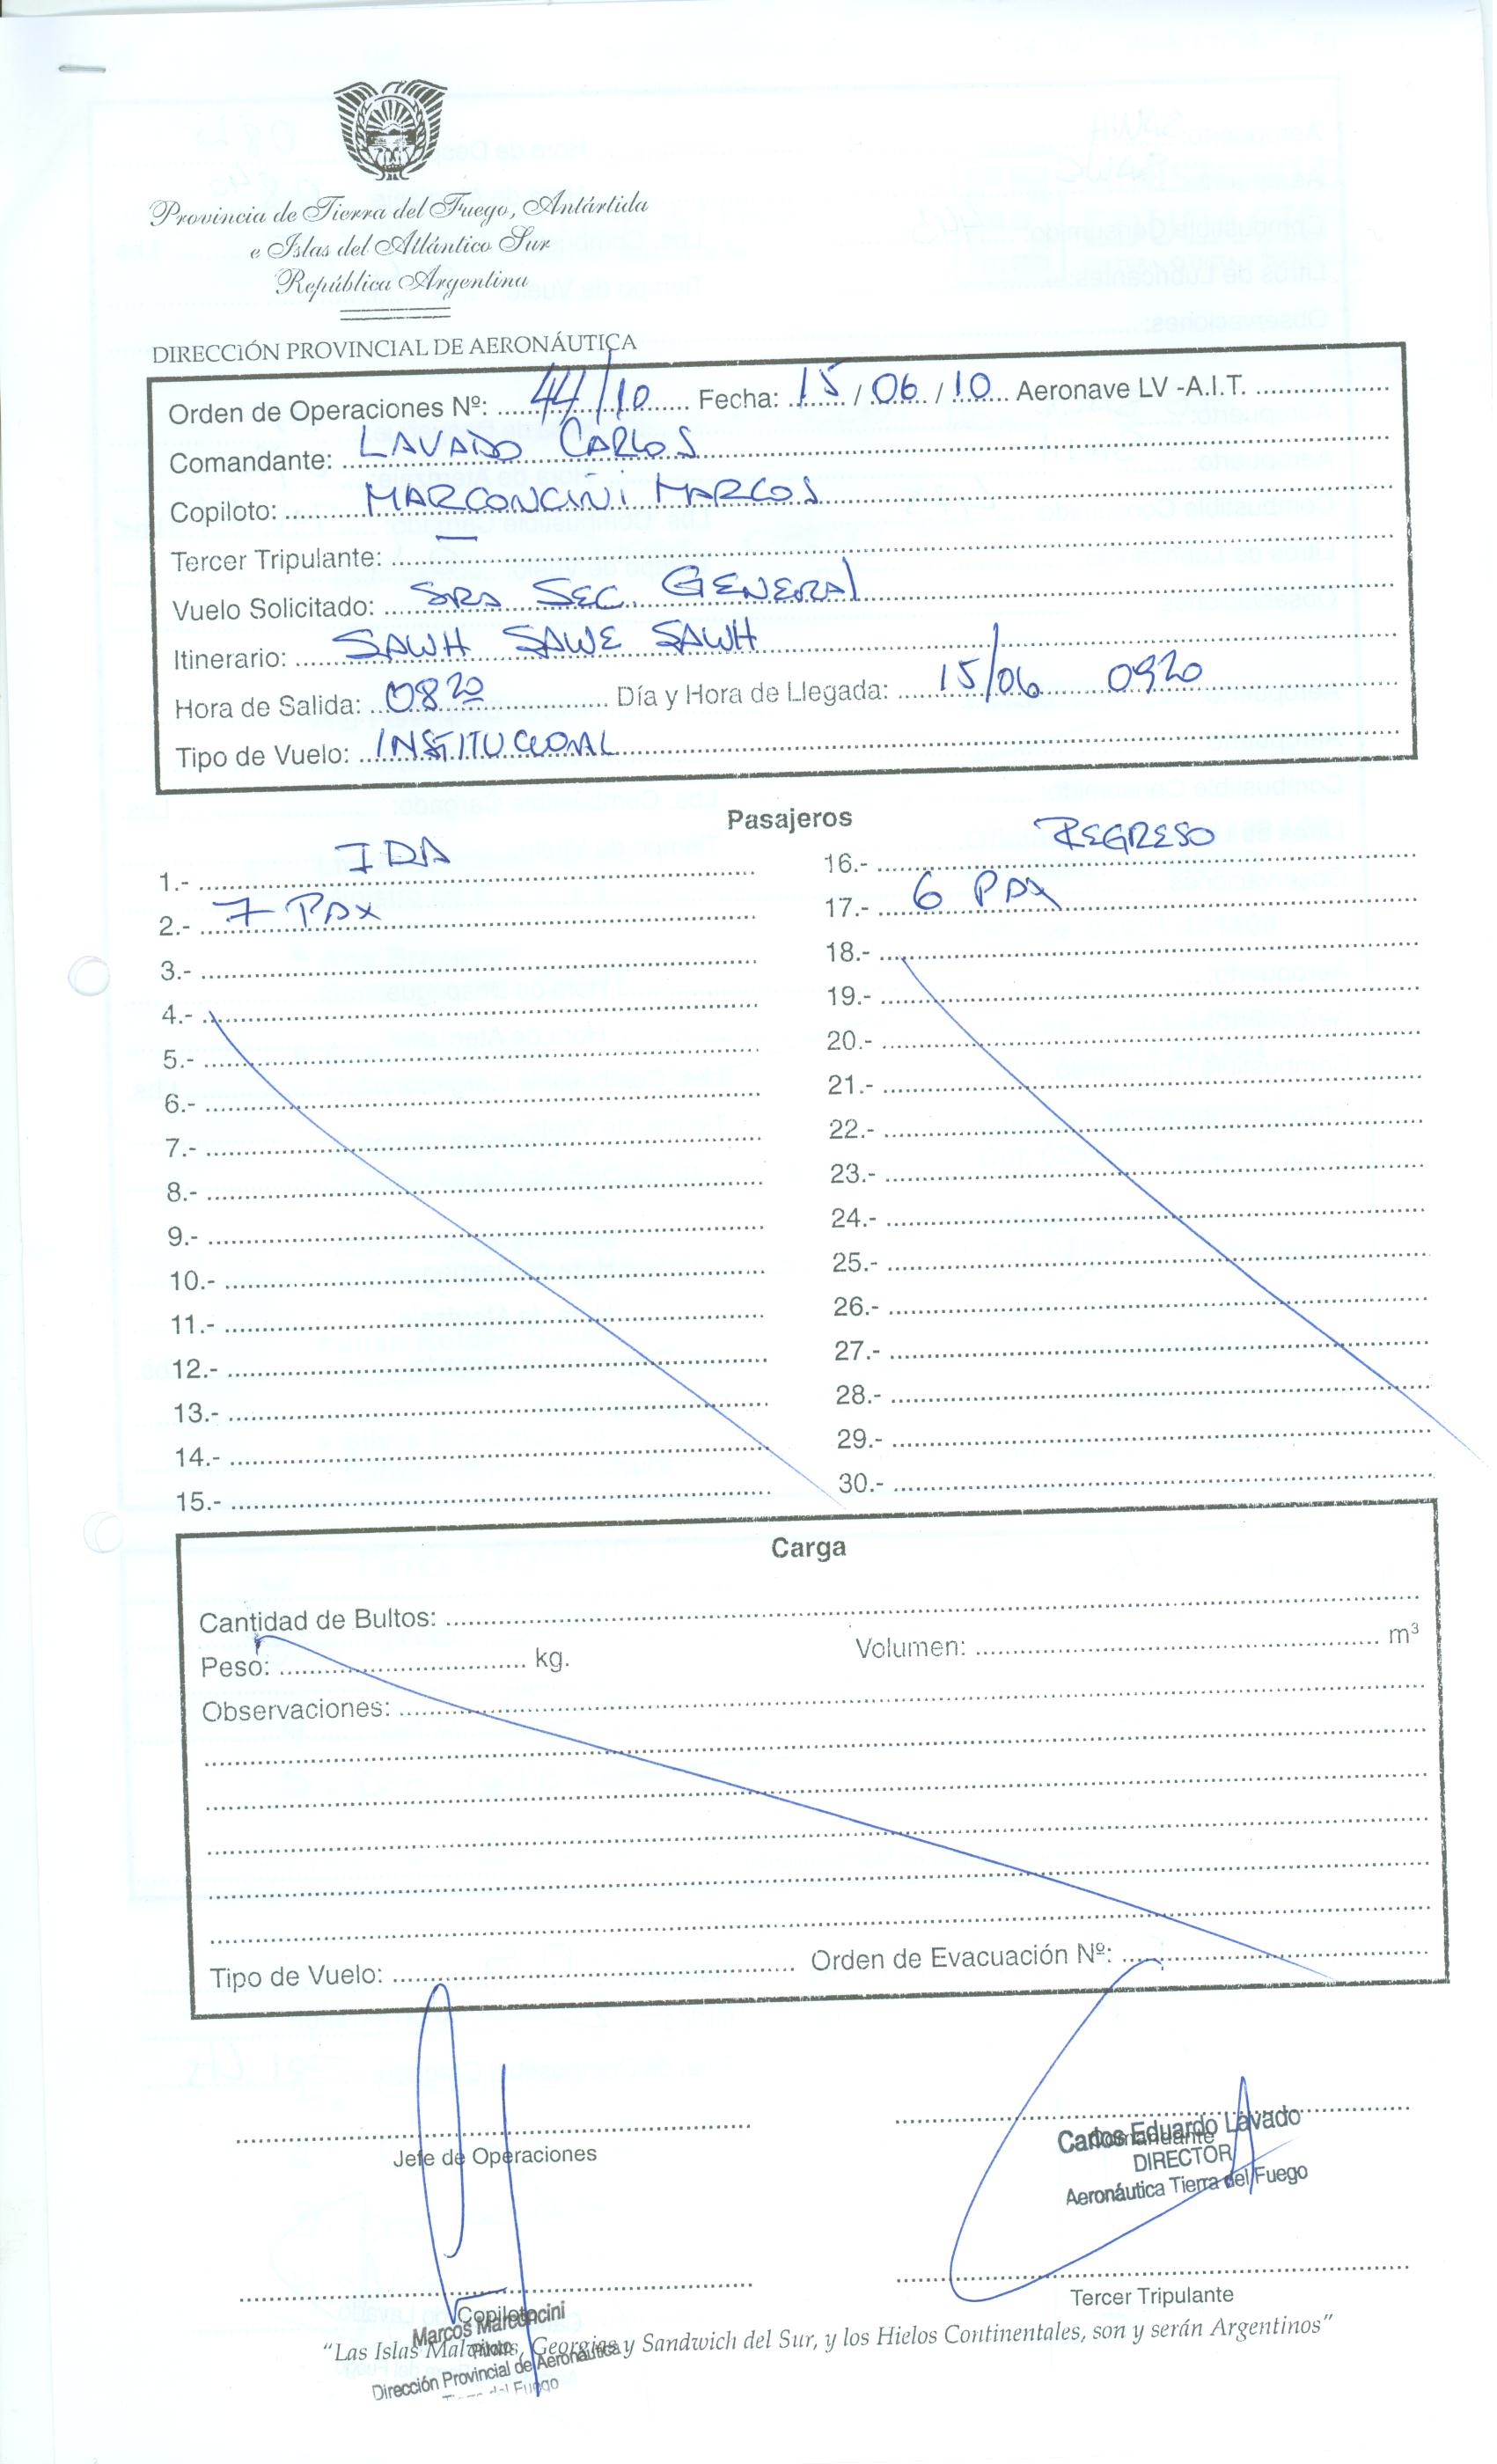 Provincia de Tierra del Fuego, Antártida
e Islas del Atlántico Sur
República Argentina
DIRECCIÓN PROVINCIAL DE AERONÁUTICA
Orden de Operaciones Nº: 44/10 Fecha: 15 / 06 / 10 Aeronave LV -A.I.T.
Comandante: LAVADO CARLOS
Copiloto: MARCONCINI MARCOS
Tercer Tripulante: —
Vuelo Solicitado: SRA SEC. GENERAL
Itinerario: SAWH SAWE SAWH
Hora de Salida: 0820 Día y Hora de Llegada: 15/06 0920
Tipo de Vuelo: INSTITUCIONAL
Pasajeros
1.- IDA
2.- 7 PAX
3.-
4.-
5.-
6.-
7.-
8.-
9.-
10.-
11.-
12.-
13.-
14.-
15.-
16.- REGRESO
17.- 6 PAX
18.-
19.-
20.-
21.-
22.-
23.-
24.-
25.-
26.-
27.-
28.-
29.-
30.-
Carga
Cantidad de Bultos:
Peso: kg. Volumen: m³
Observaciones:
Tipo de Vuelo: Orden de Evacuación Nº:
Jefe de Operaciones
Comandante
Carlos Eduardo Lavado
DIRECTOR
Aeronáutica Tierra del Fuego
Copiloto
Tercer Tripulante
Marcos Marconcini
Piloto
Dirección Provincial de Aeronáutica
Tierra del Fuego
"Las Islas Malvinas, Georgias y Sandwich del Sur, y los Hielos Continentales, son y serán Argentinos"